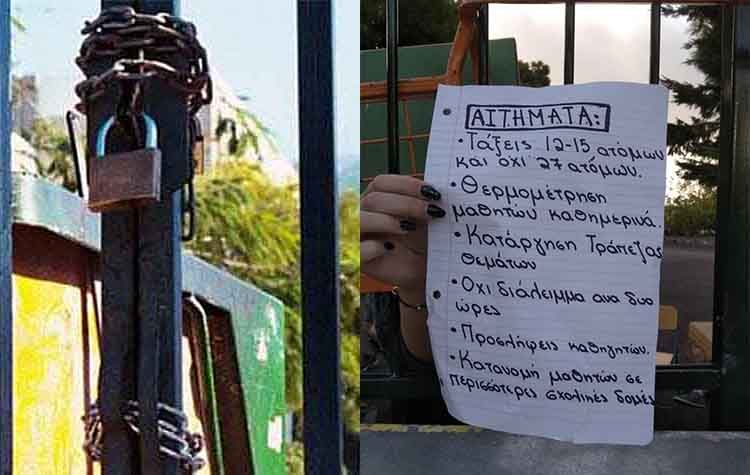 ΑΙΤΗΜΑΤΑ:
• Τάξεις 12-15 ατόμων
και όχι 27 ατόμων.
• Θερμομέτρηση
μαθητών καθημερινά.
• Κατάργηση Τράπεζας
Θεμάτων
• Όχι διάλειμμα ανα δυο
ώρες
• Προσλήψεις καθηγητών.
• Κατανομή μαθητών σε
περισσότερες σχολικές δομές